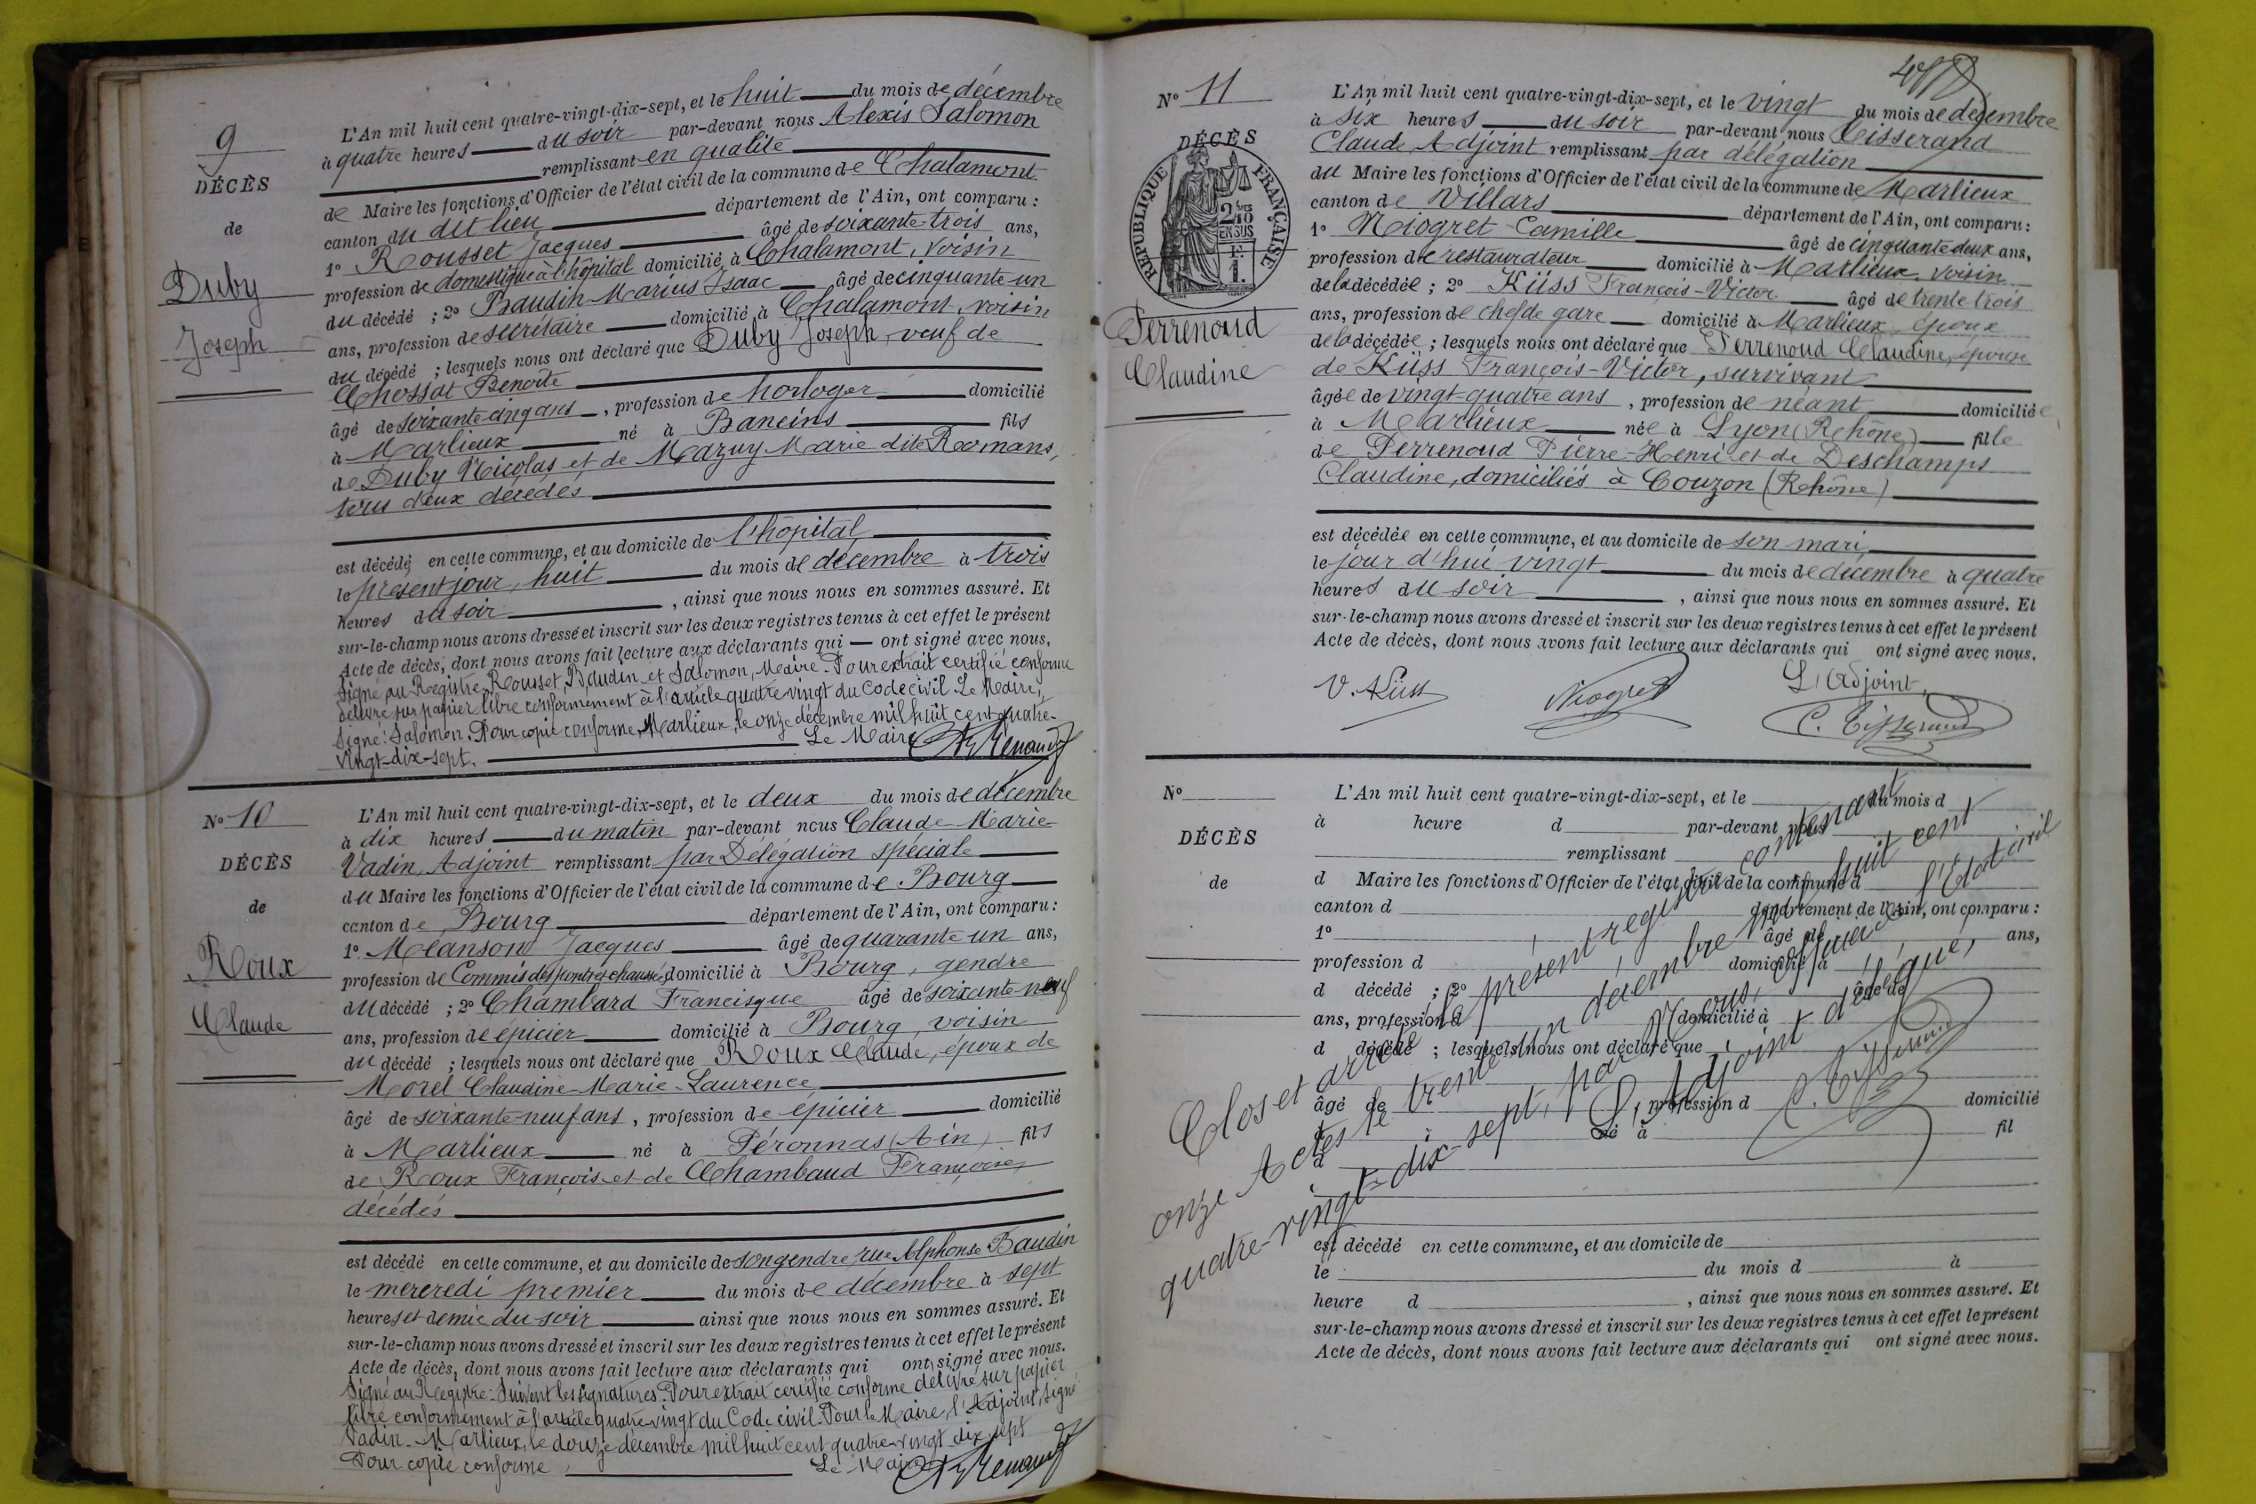 9
DÉCÈS
de
Duby
Joseph
L'An mil huit cent quatre-vingt-dix-sept, et le huit du mois de décembre
à quatre heures du soir par-devant nous Alexis Salomon
remplissant en qualité
de Maire les fonctions d'Officier de l'état civil de la commune de Chalamont
canton du dit lieu département de l'Ain, ont comparu :
1° Rousset Jacques âgé de soixante-trois ans,
profession de domestique à l'hôpital domicilié à Chalamont, voisin
du décédé ; 2° Baudin Marius Isaac âgé de cinquante un
ans, profession de secrétaire domicilié à Chalamont, voisin
du décédé ; lesquels nous ont déclaré que Duby Joseph, veuf de
Chossat Benoîte
âgé de soixante-cinq ans, profession de horloger domicilié
à Marlieux né à Baneins fils
de Duby Nicolas et de Mazuy Marie dite Romans,
tous deux décédés
est décédé en cette commune, et au domicile de l'hôpital
le présent jour, huit du mois de décembre à trois
heures du soir, ainsi que nous nous en sommes assuré. Et
sur-le-champ nous avons dressé et inscrit sur les deux registres tenus à cet effet le présent
Acte de décès, dont nous avons fait lecture aux déclarants qui — ont signé avec nous.
Signé au Registre Rousset, Baudin et Salomon, Maire. Pour extrait certifié conforme
délivré sur papier libre conformément à l'article quatre vingt du Code civil Le Maire,
Signé : Salomon. Pour copie conforme, Marlieux, le onze décembre mil huit cent quatre-
vingt-dix-sept. Le Maire
N° 10
DÉCÈS
de
Roux
Claude
L'An mil huit cent quatre-vingt-dix-sept, et le deux du mois de décembre
à dix heures du matin par-devant nous Claude-Marie
Vadin, Adjoint remplissant par Délégation spéciale
du Maire les fonctions d'Officier de l'état civil de la commune de Bourg
canton de Bourg département de l'Ain, ont comparu :
1° Meanson Jacques âgé de quarante-un ans,
profession de Commis des ponts et chaussées domicilié à Bourg, gendre
du décédé ; 2° Chambard Francisque âgé de soixante-neuf
ans, profession de épicier domicilié à Bourg, voisin
du décédé ; lesquels nous ont déclaré que Roux Claude, époux de
Morel Claudine-Marie-Laurence
âgé de soixante-neuf ans, profession de épicier domicilié
à Marlieux né à Péronnas (Ain) fils
de Roux François et de Chambaud Françoise,
décédés
est décédé en cette commune, et au domicile de son gendre rue Alphonse Baudin
le mercredi premier du mois de décembre à sept
heures et demie du soir ainsi que nous nous en sommes assuré. Et
sur-le-champ nous avons dressé et inscrit sur les deux registres tenus à cet effet le présent
Acte de décès, dont nous avons fait lecture aux déclarants qui ont signé avec nous.
Signé au Registre. Suivent les signatures. Pour extrait certifié conforme délivré sur papier
libre conformément à l'article quatre-vingt du Code civil. Pour le Maire, l'Adjoint, signé
Vadin. Marlieux, le douze décembre mil huit cent quatre-vingt dix sept
Pour copie conforme, Le Maire
N° 11
DÉCÈS
RÉPUBLIQUE FRANÇAISE
Perrenoud
Claudine
L'An mil huit cent quatre-vingt-dix-sept, et le vingt du mois de décembre
à six heures du soir par-devant nous Tisserand
Claude, Adjoint remplissant par délégation
du Maire les fonctions d'Officier de l'état civil de la commune de Marlieux
canton de Villars département de l'Ain, ont comparu :
1° Niogret Camille âgé de cinquante-deux ans,
profession de restaurateur domicilié à Marlieux, voisin
de la décédée ; 2° Küss François-Victor âgé de trente trois
ans, profession de chef de gare domicilié à Marlieux, époux
de la décédée ; lesquels nous ont déclaré que Perrenoud Claudine, épouse
de Küss François-Victor, survivant
âgée de vingt-quatre ans, profession de néant domiciliée
à Marlieux née à Lyon (Rhône) fille
de Perrenoud Pierre-Henri et de Deschamps
Claudine, domiciliés à Couzon (Rhône)
est décédée en cette commune, et au domicile de son mari,
le jour d'hui vingt du mois de décembre à quatre
heures du soir, ainsi que nous nous en sommes assuré. Et
sur-le-champ nous avons dressé et inscrit sur les deux registres tenus à cet effet le présent
Acte de décès, dont nous avons fait lecture aux déclarants qui ont signé avec nous.
V. Küss Niogret L'Adjoint,
C. Tisserand
N°
DÉCÈS
de
L'An mil huit cent quatre-vingt-dix-sept, et le du mois d
à heure d par-devant nous
remplissant
d Maire les fonctions d'Officier de l'état civil de la commune d
canton d département de l'Ain, ont comparu :
1° âgé de ans,
profession d domicilié à
d décédé ; 2° âgé de
ans, profession d domicilié à
d décédé ; lesquels nous ont déclaré que
âgé de profession d domicilié
à né à fil
d
est décédé en cette commune, et au domicile de
le du mois d à
heure d , ainsi que nous nous en sommes assuré. Et
sur-le-champ nous avons dressé et inscrit sur les deux registres tenus à cet effet le présent
Acte de décès, dont nous avons fait lecture aux déclarants qui ont signé avec nous.
Clos et arrêté le présent registre contenant
onze Actes le trente-un décembre mil huit cent
quatre-vingt-dix-sept, par Nous, officier de l'État civil
L'Adjoint délégué,
C. Tisserand